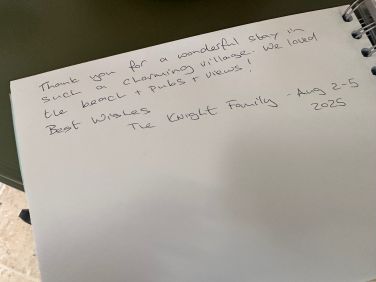 Thank you for a wonderful stay in
such a charming village. We loved
the beach + pubs + views!
Best Wishes
The Knight Family - Aug 2-5
2025